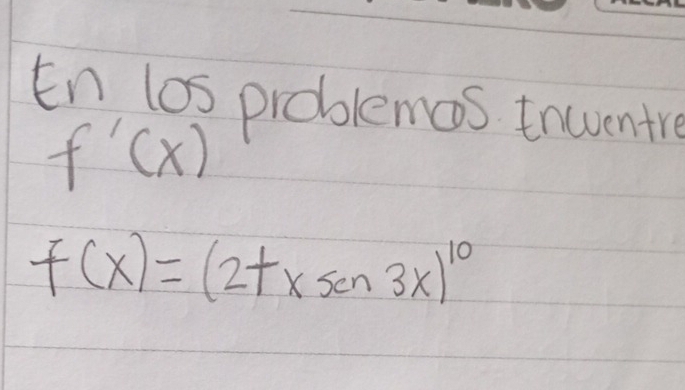 En los problemas. Encuentre
f'(x)
f(x) = (2+x sen 3x)^10